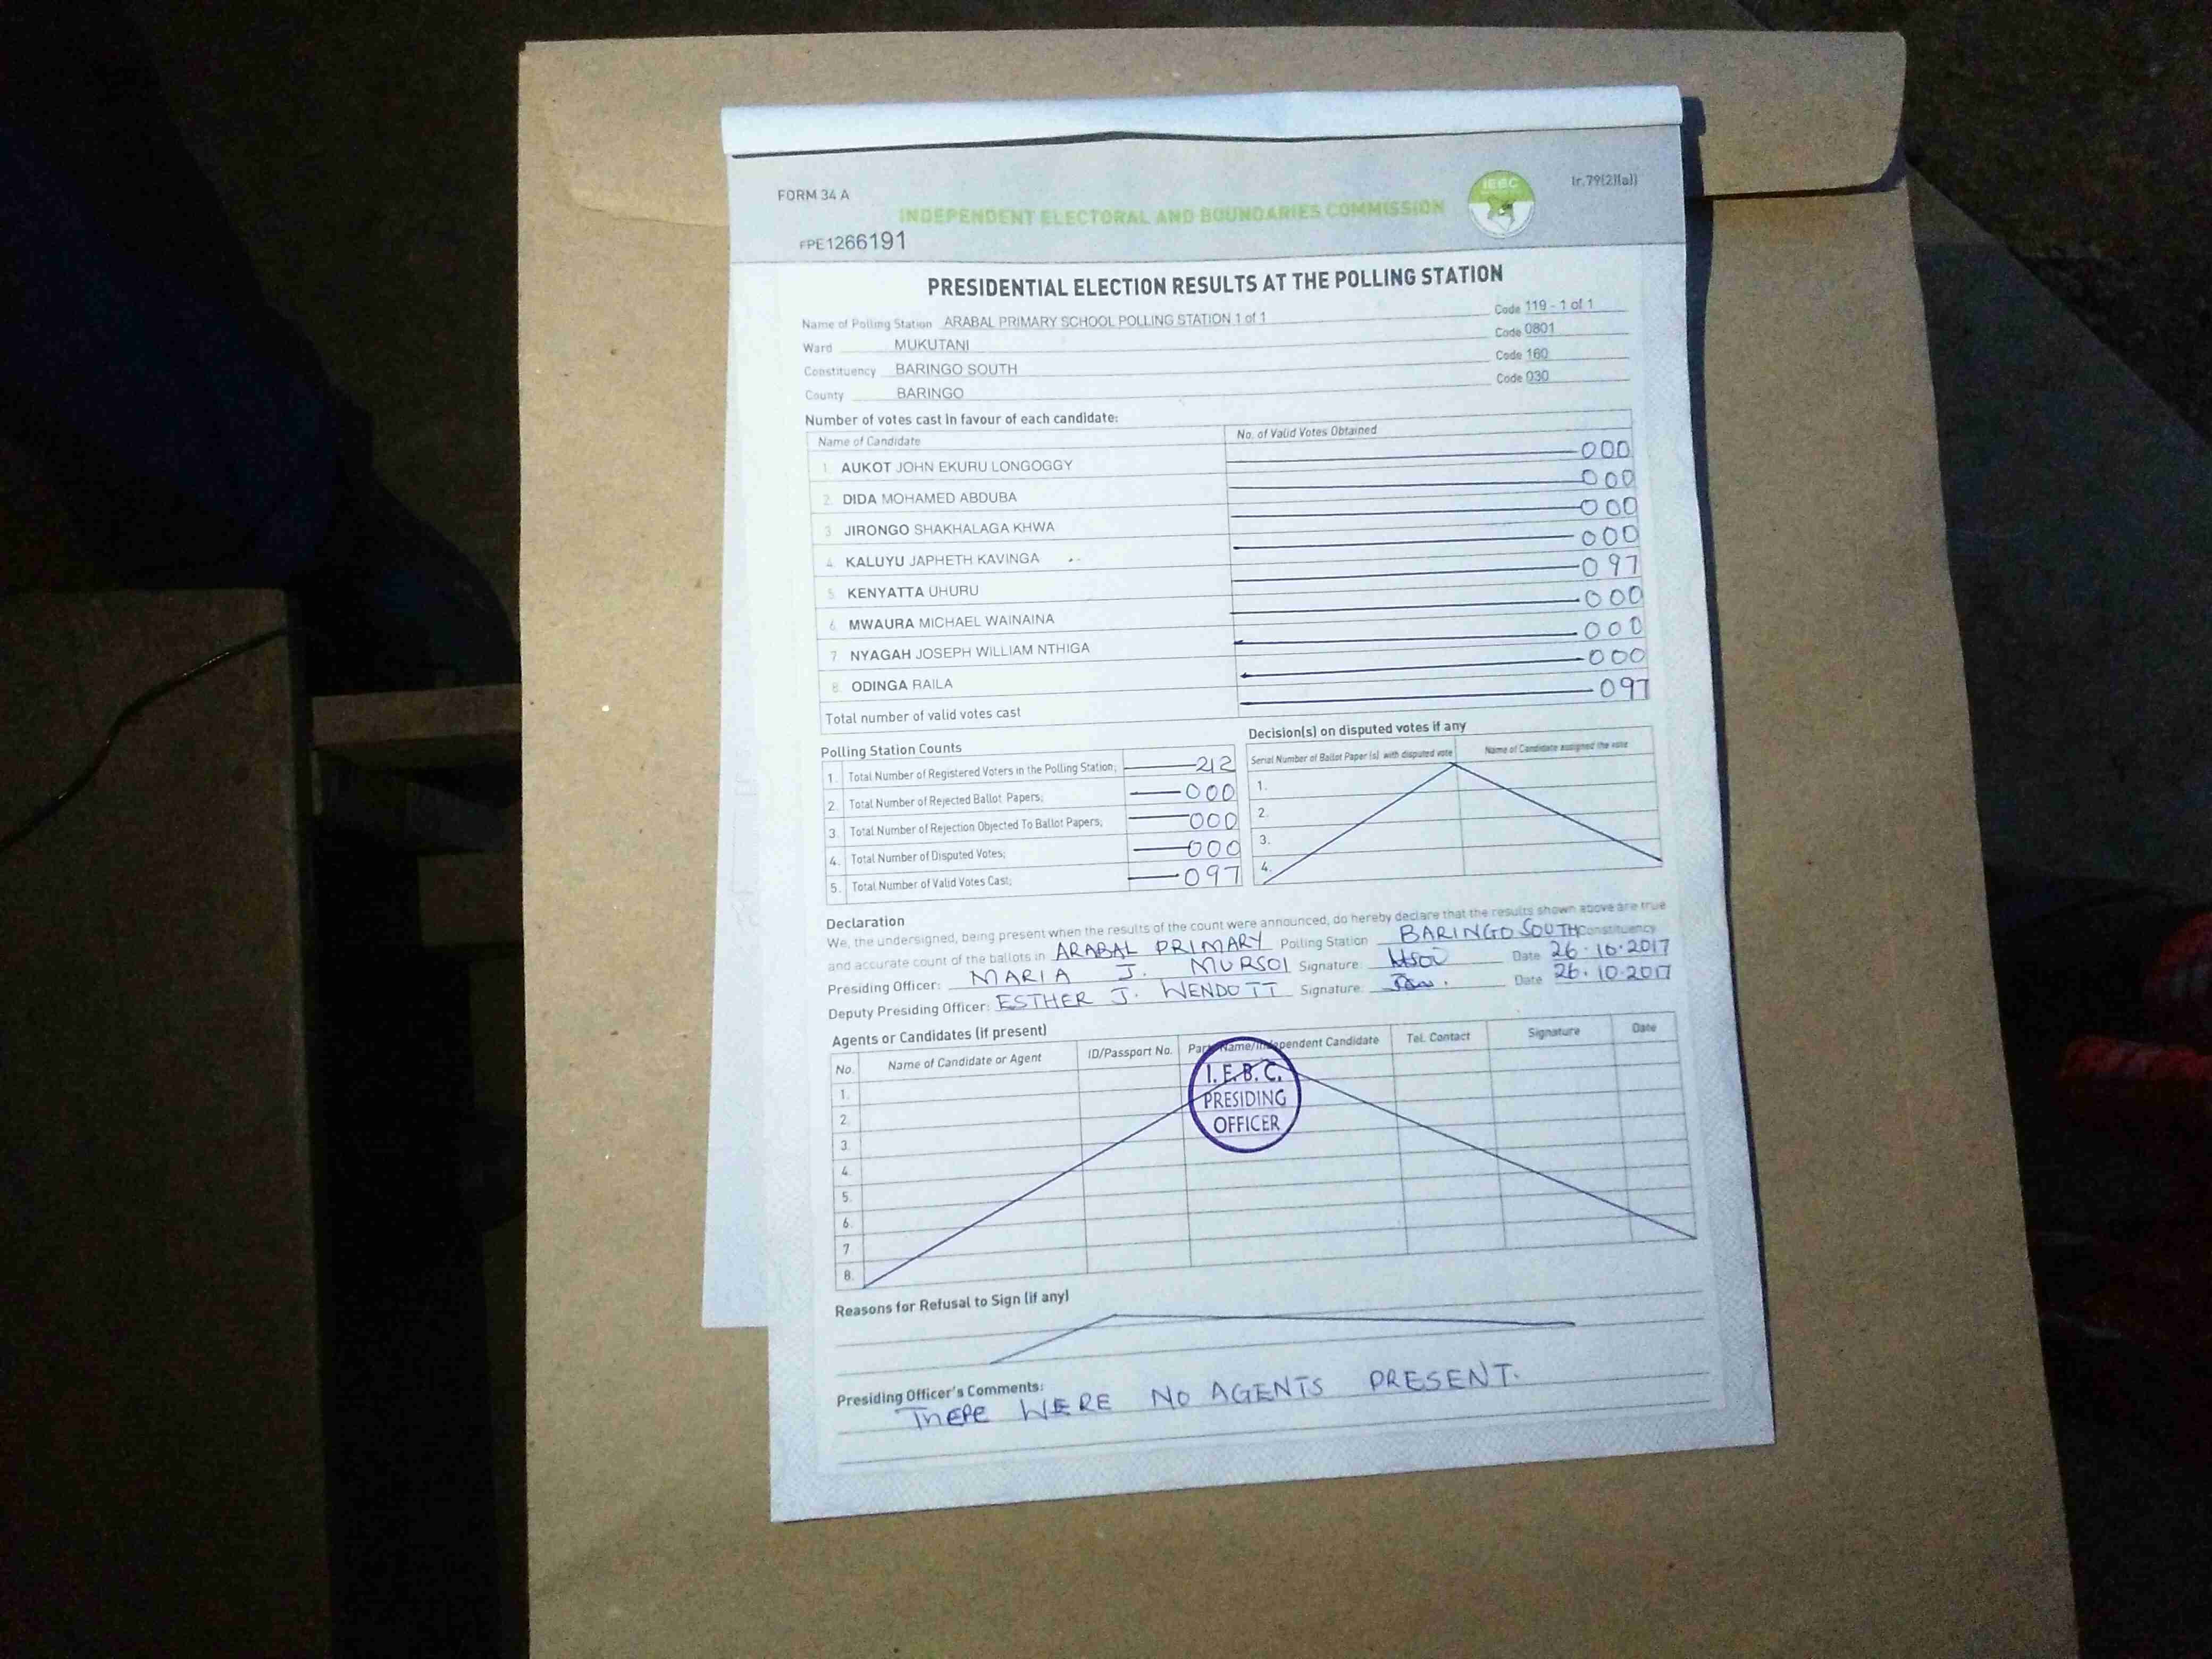 FORM 34 A
Ir.79(2)(a))
IEBC
INDEPENDENT ELECTORAL AND BOUNDARIES COMMISSION
FPE1266191
PRESIDENTIAL ELECTION RESULTS AT THE POLLING STATION
Name of Polling Station ARABAL PRIMARY SCHOOL POLLING STATION 1 of 1 Code 119 - 1 of 1
Ward MUKUTANI Code 0801
Constituency BARINGO SOUTH Code 160
County BARINGO Code 030
Number of votes cast in favour of each candidate:
Name of Candidate No. of Valid Votes Obtained
1. AUKOT JOHN EKURU LONGOGGY 000
2. DIDA MOHAMED ABDUBA 000
3 JIRONGO SHAKHALAGA KHWA 000
4. KALUYU JAPHETH KAVINGA 000
5. KENYATTA UHURU 097
6. MWAURA MICHAEL WAINAINA 000
7 NYAGAH JOSEPH WILLIAM NTHIGA 000
8. ODINGA RAILA 000
Total number of valid votes cast 097
Polling Station Counts
1. Total Number of Registered Voters in the Polling Station; 212
2. Total Number of Rejected Ballot Papers; 000
3. Total Number of Rejection Objected To Ballot Papers; 000
4. Total Number of Disputed Votes; 000
5. Total Number of Valid Votes Cast; 097
Decision(s) on disputed votes if any
Serial Number of Ballot Paper (s) with disputed vote Name of Candidate assigned the vote
1.
2.
3.
4.
Declaration
We, the undersigned, being present when the results of the count were announced, do hereby declare that the results shown above are true
and accurate count of the ballots in ARABAL PRIMARY Polling Station BARINGO SOUTH Constituency
Presiding Officer: MARIA J. MURSOI Signature: Date 26.10.2017
Deputy Presiding Officer: ESTHER J. WENDOTT Signature: Date 26.10.2017
Agents or Candidates (if present)
No. Name of Candidate or Agent ID/Passport No. Party Name/Independent Candidate Tel. Contact Signature Date
1.
2.
3.
4.
5.
6.
7
8.
I.E.B.C.
PRESIDING
OFFICER
Reasons for Refusal to Sign (if any)
Presiding Officer's Comments:
THERE WERE NO AGENTS PRESENT.